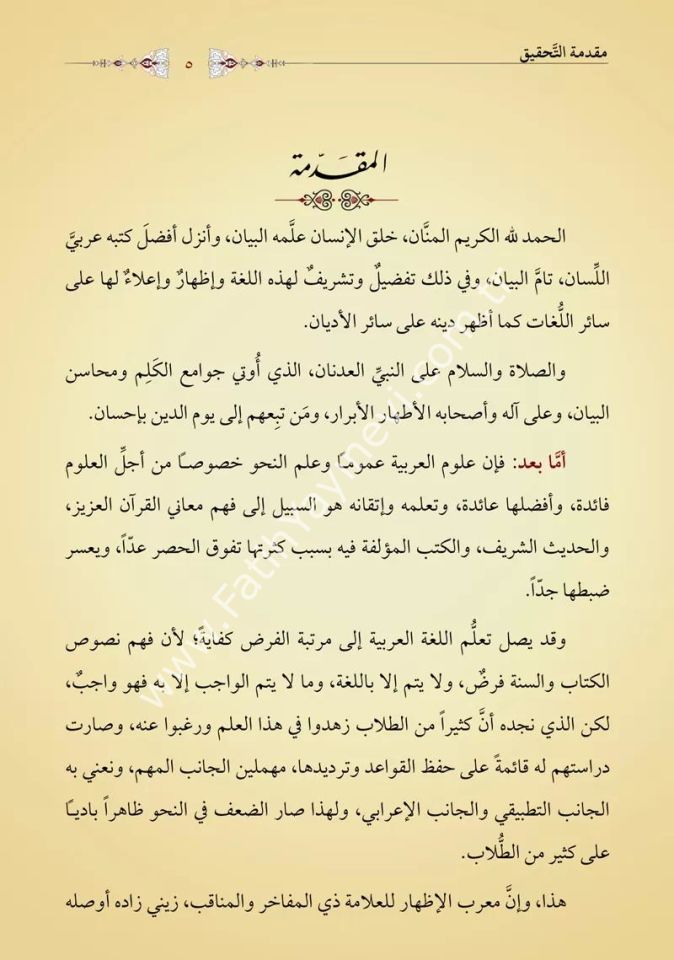 مقدمة التَّحقيق
٥
المقَدّمة
الحمد لله الكريم المنَّان، خلق الإنسان علَّمه البيان، وأنزل أفضلَ كتبه عربيَّ
اللِّسان، تامَّ البيان، وفي ذلك تفضيلٌ وتشريفٌ لهذه اللغة وإظهارٌ وإعلاءٌ لها على
سائر اللُّغات كما أظهر دينه على سائر الأديان.
والصلاة والسلام على النبيِّ العدنان، الذي أُوتي جوامع الكَلِم ومحاسن
البيان، وعلى آله وأصحابه الأطهار الأبرار، ومَن تبِعهم إلى يوم الدين بإحسان.
أمَّا بعد: فإن علوم العربية عمومًا وعلم النحو خصوصًا من أجلِّ العلوم
فائدة، وأفضلها عائدة، وتعلمه وإتقانه هو السبيل إلى فهم معاني القرآن العزيز،
والحديث الشريف، والكتب المؤلفة فيه بسبب كثرتها تفوق الحصر عدّاً، ويعسر
ضبطها جدّاً.
وقد يصل تعلُّم اللغة العربية إلى مرتبة الفرض كفايةً؛ لأن فهم نصوص
الكتاب والسنة فرضٌ، ولا يتم إلا باللغة، وما لا يتم الواجب إلا به فهو واجبٌ،
لكن الذي نجده أنَّ كثيراً من الطلاب زهدوا في هذا العلم ورغبوا عنه، وصارت
دراستهم له قائمةً على حفظ القواعد وترديدها، مهملين الجانب المهم، ونعني به
الجانب التطبيقي والجانب الإعرابي، ولهذا صار الضعف في النحو ظاهراً باديًا
على كثير من الطُّلاب.
هذا، وإنَّ معرب الإظهار للعلامة ذي المفاخر والمناقب، زيني زاده أوصله
www.FatihYayinevi.com.tr